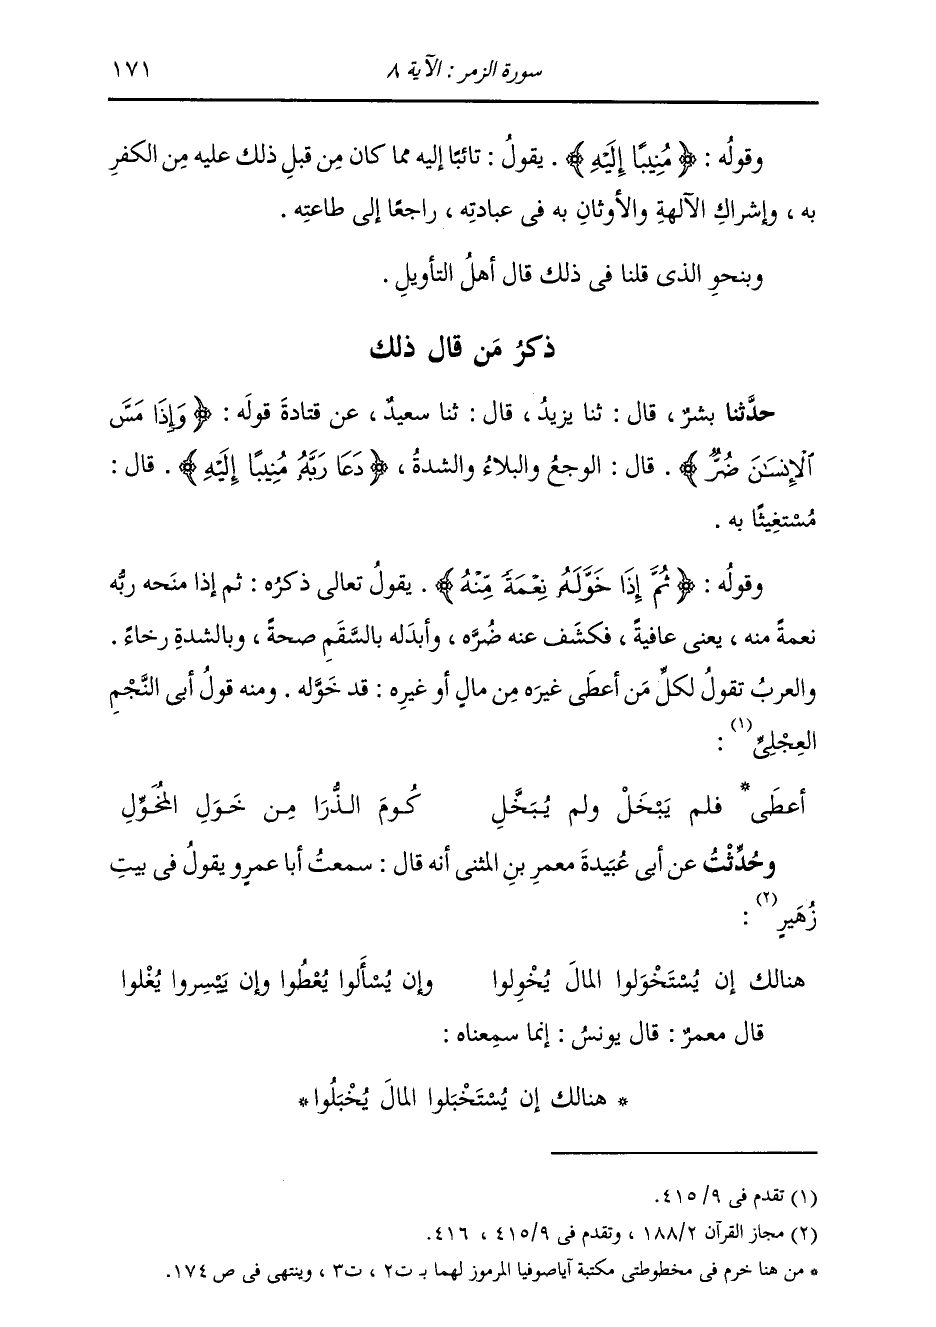 سورة الزمر : الآية ٨ ١٧١
وقولُه : ﴿ مُنِيبًا إِلَيْهِ ﴾ . يقولُ : تائبًا إليه مما كان مِن قبلِ ذلك عليه مِن الكفرِ
به ، وإشراكِ الآلهةِ والأوثانِ به فى عبادتِه ، راجعًا إلى طاعتِه .
وبنحوِ الذى قلنا فى ذلك قال أهلُ التأويلِ .
ذكرُ مَن قال ذلك
حدَّثنا بشرٌ ، قال : ثنا يزيدُ ، قال : ثنا سعيدٌ ، عن قتادةَ قولَه : ﴿ وَإِذَا مَسَّ
ٱلْإِنسَـٰنَ ضُرٌّ ﴾ . قال : الوجعُ والبلاءُ والشدةُ ، ﴿ دَعَا رَبَّهُۥ مُنِيبًا إِلَيْهِ ﴾ . قال :
مُسْتغِيثًا به .
وقولُه : ﴿ ثُمَّ إِذَا خَوَّلَهُۥ نِعْمَةً مِّنْهُ ﴾ . يقولُ تعالى ذكرُه : ثم إذا منَحه ربُّه
نعمةً منه ، يعنى عافيةً ، فكشَف عنه ضُرَّه ، وأبدَله بالسَّقَمِ صحةً ، وبالشدةِ رخاءً .
والعربُ تقولُ لكلِّ مَن أعطَى غيرَه مِن مالٍ أو غيرِه : قد خَوَّله . ومنه قولُ أبى النَّجْمِ
العِجْلِىِّ(١) :
أعطَى* فلم يَبْخَلْ ولم يُبَخَّلِ كُومَ الذُّرَا مِن خَوَلِ المُخَوِّلِ
وحُدِّثْتُ عن أبى عُبَيدةَ معمرِ بنِ المثنى أنه قال : سمعتُ أبا عمرٍو يقولُ فى بيتِ
زُهَيرٍ(٢) :
هنالك إن يُسْتَخْوَلوا المالَ يُخْوِلوا وإن يُسْأَلوا يُعْطُوا وإن يَيْسِروا يُغْلوا
قال معمرٌ : قال يونسُ : إنما سمِعناه :
* هنالك إن يُسْتَخْبَلوا المالَ يُخْبَلُوا *
(١) تقدم فى ٩/ ٤١٥.
(٢) مجاز القرآن ١٨٨/٢ ، وتقدم فى ٤١٥/٩ ، ٤١٦.
* من هنا خرم فى مخطوطتى مكتبة آياصوفيا المرموز لهما بـ ت٢ ، ت٣ ، وينتهى فى ص ١٧٤.